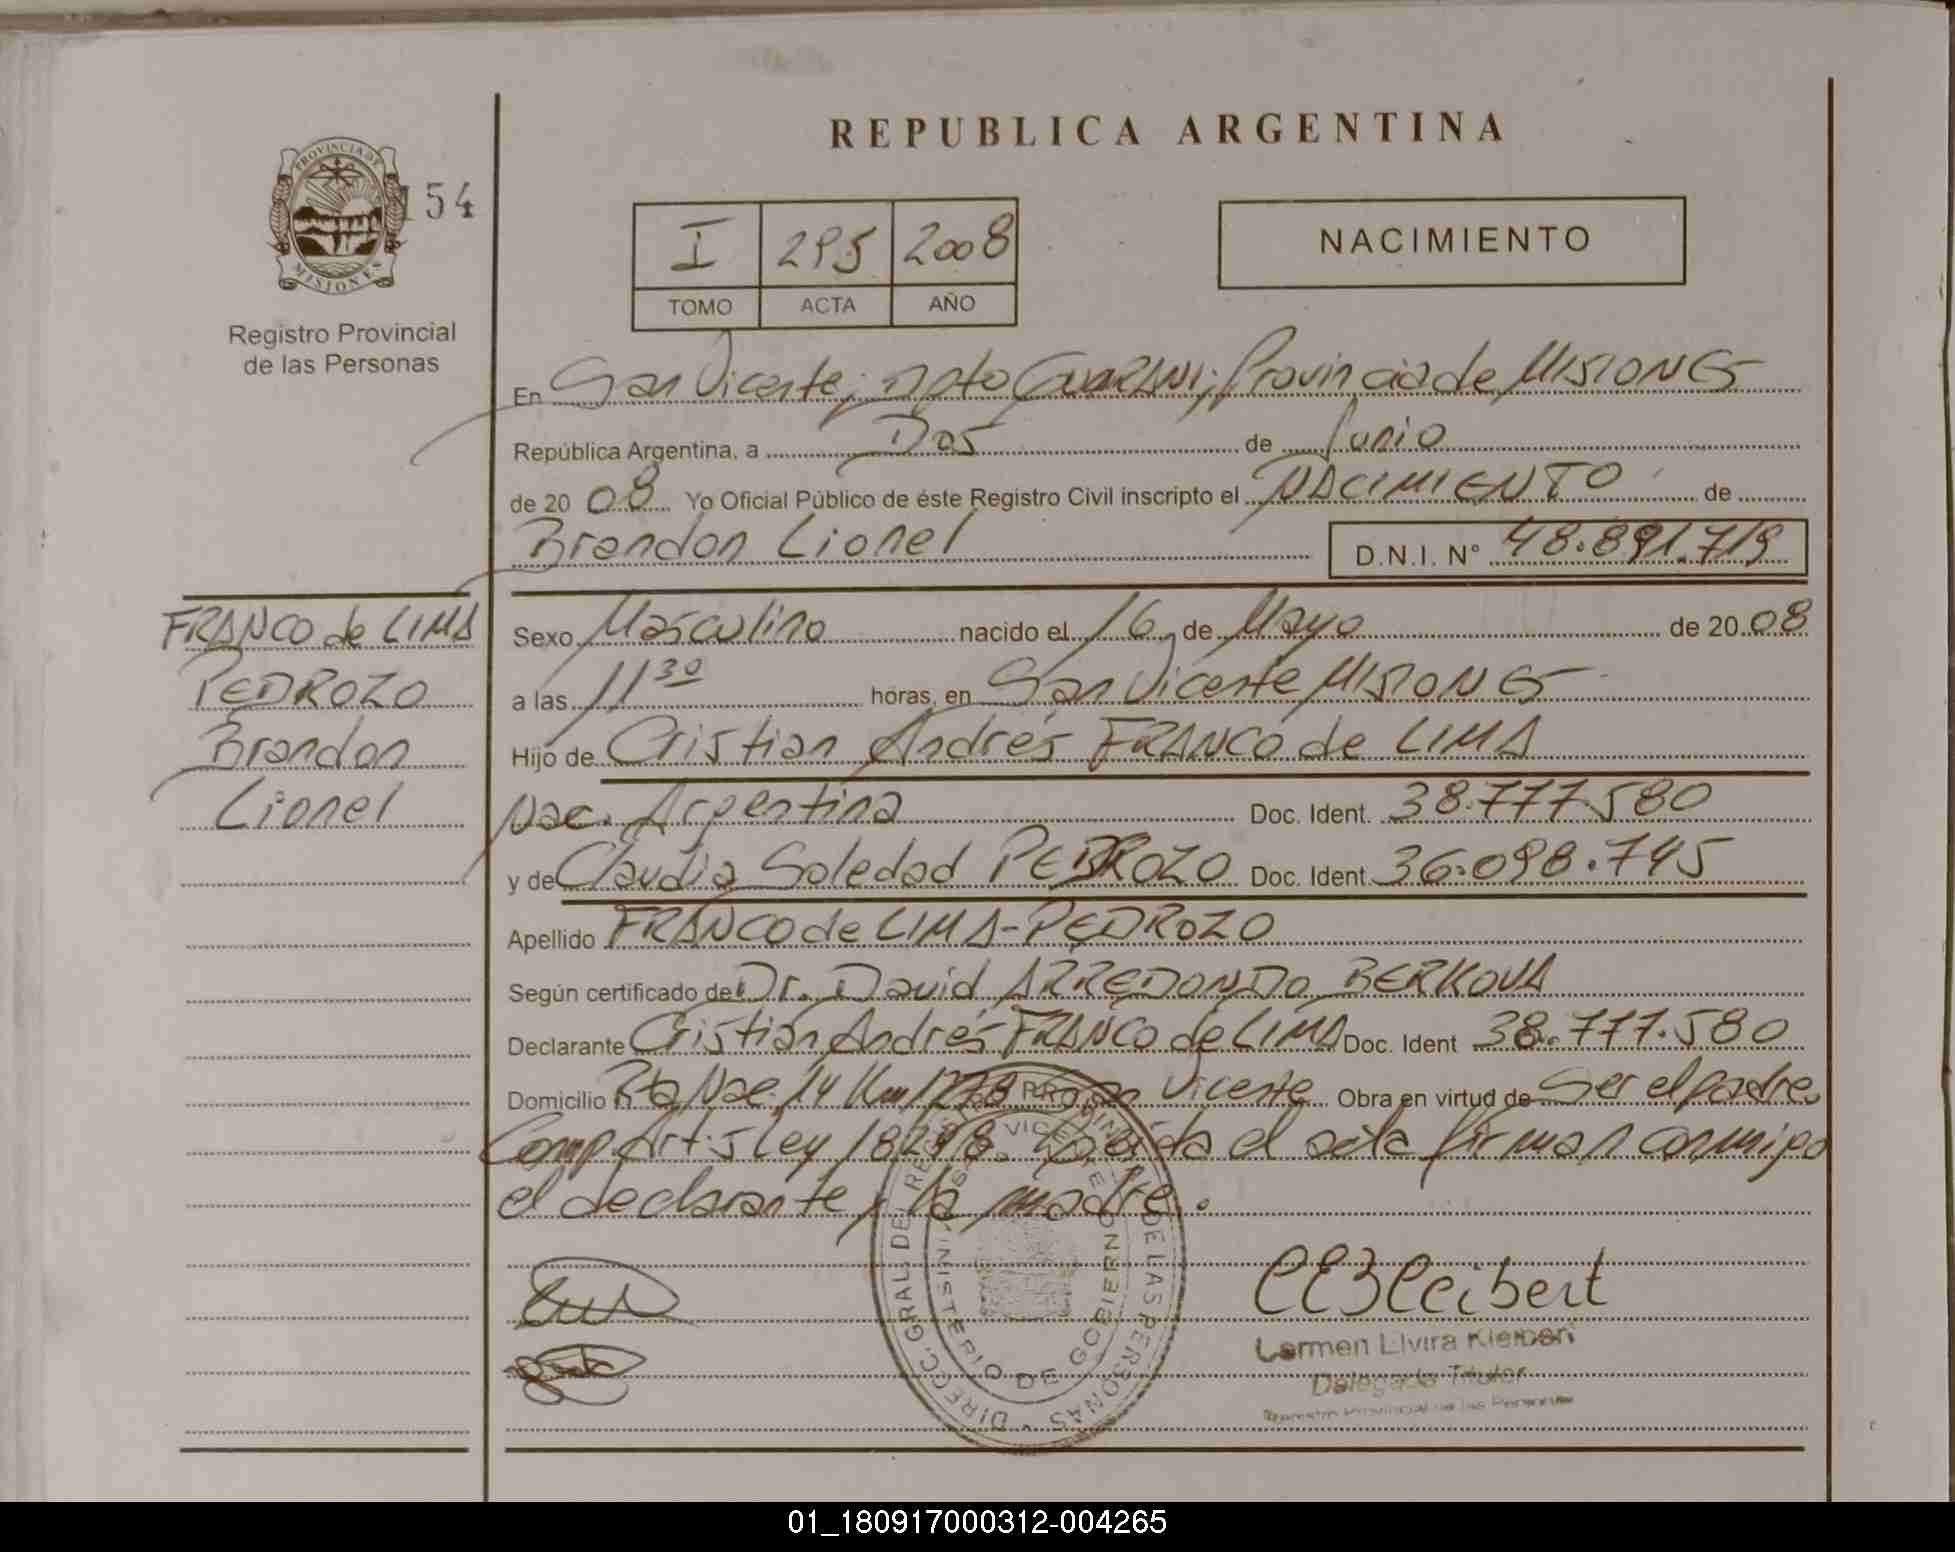 REPUBLICA ARGENTINA
PROVINCIA DE
MISIONES
154
I 295 2008
TOMO ACTA AÑO
NACIMIENTO
Registro Provincial
de las Personas
En San Vicente; Dpto GUARANI; Provincia de MISIONES
República Argentina, a Dos de Junio
de 20 08 Yo Oficial Público de éste Registro Civil inscripto el NACIMIENTO de
Brandon Lionel D.N.I. N° 48.891.719
FRANCO de LIMA
PEDROZO
Brandon
Lionel
Sexo Masculino nacido el 16 de Mayo de 20 08
a las 11 30 horas, en San Vicente MISIONES
Hijo de Cristian Andrés FRANCO de LIMA
Nac. Argentina Doc. Ident. 38.777.580
y de Claudia Soledad PEDROZO Doc. Ident. 36.098.745
Apellido FRANCO de LIMA-PEDROZO
Según certificado de Dr. David ARREDONDO BERKOVA
Declarante Cristian Andrés FRANCO de LIMA Doc. Ident 38.777.580
Domicilio Rta Nac. 14 Km 1278 San Vicente Obra en virtud de Ser el padre
Comp. Art. 5 Ley 18248. Leída el acta firman conmigo
el declarante y la madre.
DIRECC. GRAL. DEL DE LAS PERSONAS
MINISTERIO DE GOBIERNO
CEKleibert
Carmen Elvira Kleibert
Delegada Titular
Registro Provincial de las Personas
01_180917000312-004265